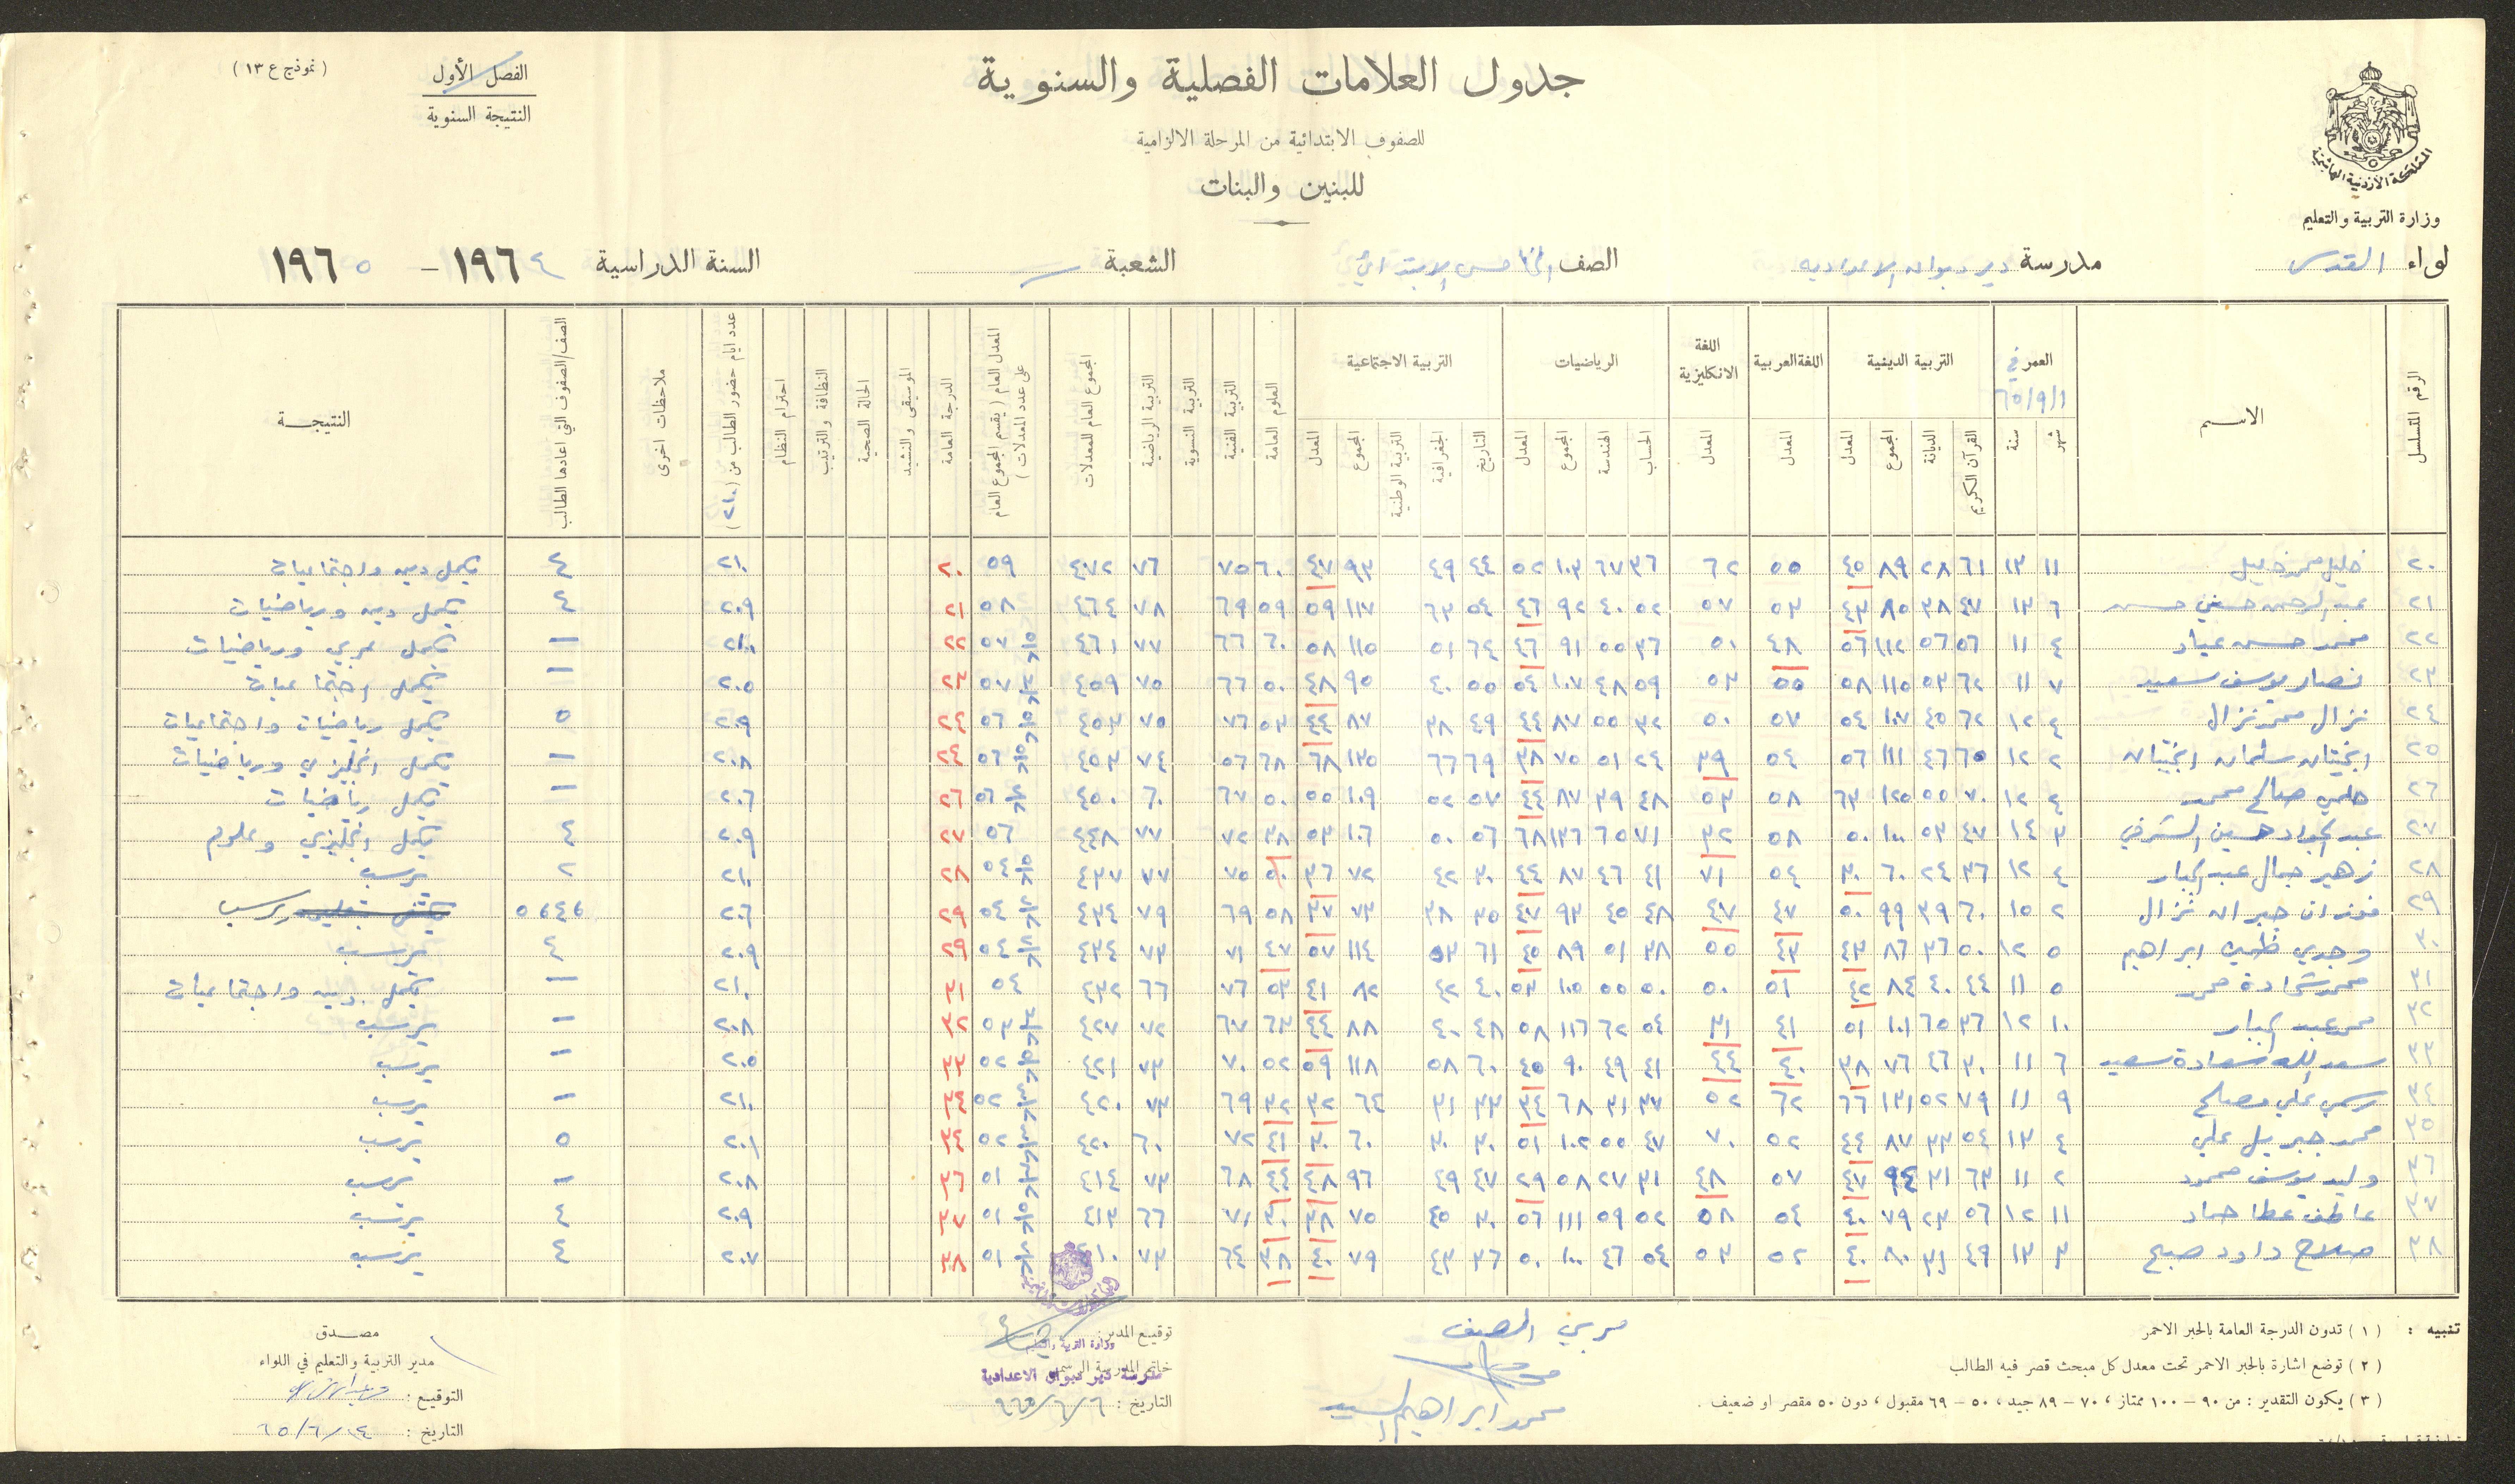 (نموذج ع ١٣)
الفصل الأول
النتيجة السنوية
جدول العلامات الفصلية والسنوية
للصفوف الابتدائية من المرحلة الالزامية
للبنين والبنات
المملكة الأردنية الهاشمية
وزارة التربية والتعليم
لواء القدس مدرسة دير دبوان الاعدادية الصف الخامس الابتدائي الشعبة السنة الدراسية ١٩٦٤ – ١٩٦٥
الرقم المتسلسل الاسم العمر في ٦٥/٩/١ التربية الدينية اللغة العربية اللغة الانكليزية الرياضيات التربية الاجتماعية العلوم العامة التربية الفنية التربية النسوية التربية الرياضية المجموع العام للمعدلات المعدل العام (يقسم المجموع العام على عدد المعدلات) الدرجة العامة الموسيقى والنشيد الحالة الصحية النظافة والترتيب احترام النظام عدد ايام حضور الطالب من (٢١٠) ملاحظات اخرى الصف/الصفوف التي اعادها الطالب النتيجة
شهر سنة القرآن الكريم الديانة المجموع المعدل المعدل المعدل الحساب الهندسة المجموع المعدل التاريخ الجغرافية التربية الوطنية المجموع المعدل
٢٠ خليل محمد خليل ١١ ١٣ ٦١ ٢٨ ٨٩ ٤٥ ٥٥ ٦٢ ٣٦ ٦٧ ١٠٣ ٥٢ ٤٤ ٤٩ ٩٣ ٤٧ ٦٠ ٧٥ ٧٦ ٤٧٢ ٥٩ ٢٠ ٢١٠ ٤ يكمل دين واجتماعيات
٢١ عبد الرحمن حسني حسن ٦ ١٣ ٤٧ ٣٨ ٨٥ ٤٣ ٥٣ ٥٧ ٥٢ ٤٠ ٩٢ ٤٦ ٥٤ ٦٣ ١١٧ ٥٩ ٥٩ ٦٩ ٧٨ ٤٦٤ ٥٨ ٢١ ٢٠٩ ٤ يكمل دين ورياضيات
٢٢ محمد حسن عياد ٤ ١١ ٥٦ ٥٦ ١١٢ ٥٦ ٤٨ ٥١ ٣٦ ٥٥ ٩١ ٤٦ ٦٤ ٥١ ١١٥ ٥٨ ٦٠ ٦٦ ٧٧ ٤٦١ ٥٧ ٢٢ ٢١٠ — يكمل عربي ورياضيات
٢٣ نصار يوسف سعيد ٧ ١١ ٦٢ ٥٣ ١١٥ ٥٨ ٥٥ ٥٣ ٥٩ ٤٨ ١٠٧ ٥٤ ٥٥ ٤٠ ٩٥ ٤٨ ٥٠ ٦٦ ٧٥ ٤٥٩ ٥٧ ٢٣ ٢٠٥ — يكمل اجتماعيات
٢٤ نزال محمد نزال ٤ ١٢ ٦٢ ٤٥ ١٠٧ ٥٤ ٥٧ ٥٠ ٣٢ ٥٥ ٨٧ ٤٤ ٤٩ ٣٨ ٨٧ ٤٤ ٥٣ ٧٦ ٧٥ ٤٥٣ ٥٦ ٢٤ ٢٠٩ ٥ يكمل رياضيات واجتماعيات
٢٥ سلمان ٢ ١٢ ٦٥ ٤٦ ١١١ ٥٦ ٥٤ ٣٩ ٢٤ ٥١ ٧٥ ٣٨ ٦٩ ٦٦ ١٣٥ ٦٨ ٦٨ ٥٦ ٧٤ ٤٥٣ ٥٦ ٢٤ ٢٠٨ — يكمل انجليزي ورياضيات
٢٦ حلمي صالح محمد ٤ ١٢ ٧٠ ٥٥ ١٢٥ ٦٣ ٥٨ ٥٣ ٤٨ ٣٩ ٨٧ ٤٤ ٥٧ ٥٢ ١٠٩ ٥٥ ٥٠ ٦٧ ٦٠ ٤٥٠ ٥٦ ٢٦ ٢٠٦ — يكمل رياضيات
٢٧ عبد الجواد حسين ٣ ١٤ ٤٧ ٥٣ ١٠٠ ٥٠ ٥٨ ٣٢ ٧١ ٦٥ ١٣٦ ٦٨ ٥٦ ٥٠ ١٠٦ ٥٣ ٣٨ ٧٢ ٧٧ ٤٤٨ ٥٦ ٢٧ ٢٠٩ ٤ يكمل انجليزي وعلوم
٢٨ زهير جمال عبد الجبار ٤ ١٢ ٣٦ ٢٤ ٦٠ ٣٠ ٥٤ ٧١ ٤١ ٤٦ ٨٧ ٤٤ ٣٠ ٤٢ ٧٢ ٣٦ ٥٠ ٧٥ ٧٧ ٤٣٧ ٥٤ ٢٨ ٢١٠ ٢ يرسب
٢٩ فوزان جبران نزال ٢ ١٥ ٦٠ ٣٩ ٩٩ ٥٠ ٤٧ ٤٧ ٤٨ ٤٥ ٩٣ ٤٧ ٣٥ ٣٨ ٧٣ ٣٧ ٥٨ ٦٩ ٧٩ ٤٣٤ ٥٤ ٢٩ ٢٠٦ يرسب
٣٠ وجدي ابراهيم ٥ ١٢ ٥٠ ٣٦ ٨٦ ٤٣ ٤٣ ٥٥ ٣٨ ٥١ ٨٩ ٤٥ ٦١ ٥٣ ١١٤ ٥٧ ٤٧ ٧١ ٧٣ ٤٣٤ ٥٤ ٢٩ ٢٠٩ ٤ يرسب
٣١ محمد شحادة حمد ٥ ١١ ٤٤ ٤٠ ٨٤ ٤٢ ٥١ ٥٠ ٥٠ ٥٥ ١٠٥ ٥٣ ٤٠ ٤٢ ٨٢ ٤١ ٥٣ ٧٦ ٦٦ ٤٣٢ ٥٤ ٣١ ٢١٠ — يكمل دين واجتماعيات
٣٢ محمد عبد الجبار ١٠ ١٢ ٣٦ ٦٥ ١٠١ ٥١ ٤١ ٣١ ٥٤ ٦٢ ١١٦ ٥٨ ٤٨ ٤٠ ٨٨ ٤٤ ٦٣ ٦٧ ٧٢ ٤٢٧ ٥٣ ٣٢ ٢٠٨ — يرسب
٣٣ سعد الله سعادة سعيد ٦ ١١ ٣٠ ٤٦ ٧٦ ٣٨ ٤٠ ٤٤ ٤١ ٤٩ ٩٠ ٤٥ ٦٠ ٥٨ ١١٨ ٥٩ ٥٢ ٧٠ ٧٣ ٤٢١ ٥٢ ٣٣ ٢٠٥ — يرسب
٣٤ رسمي علي مصلح ٩ ١١ ٧٩ ٥٢ ١٣١ ٦٦ ٦٢ ٥٢ ٣٧ ٣١ ٦٨ ٣٤ ٣٣ ٣١ ٦٤ ٣٢ ٣٢ ٦٩ ٧٣ ٤٢٠ ٥٢ ٣٤ ٢١٠ — يرسب
٣٥ محمد جبريل علي ٤ ١٣ ٥٤ ٣٣ ٨٧ ٤٤ ٥٢ ٧٠ ٤٧ ٥٥ ١٠٢ ٥١ ٣٠ ٣٠ ٦٠ ٣٠ ٤١ ٧٢ ٦٠ ٤٢٠ ٥٢ ٣٤ ٢٠١ ٥ يرسب
٣٦ وليد يوسف محمود ٢ ١١ ٦٣ ٣١ ٩٤ ٤٧ ٥٧ ٤٨ ٣١ ٢٧ ٥٨ ٢٩ ٤٧ ٤٩ ٩٦ ٤٨ ٤٤ ٦٨ ٧٣ ٤١٤ ٥١ ٣٦ ٢٠٨ — يرسب
٣٧ عاطف عطا حماد ١١ ١٢ ٥٦ ٢٣ ٧٩ ٤٠ ٥٤ ٥٨ ٥٢ ٥٩ ١١١ ٥٦ ٣٠ ٤٥ ٧٥ ٣٨ ٣٠ ٧١ ٦٦ ٤١٣ ٥١ ٣٧ ٢٠٩ ٤ يرسب
٣٨ صلاح داود صبح ٣ ١٣ ٤٩ ٣١ ٨٠ ٤٠ ٥٢ ٥٣ ٥٤ ٤٦ ١٠٠ ٥٠ ٣٦ ٤٣ ٧٩ ٤٠ ٣٨ ٦٤ ٧٣ ٤١٠ ٥١ ٣٨ ٢٠٧ ٤ يرسب
تنبيه : (١) تدون الدرجة العامة بالحبر الاحمر
(٢) توضع اشارة بالحبر الاحمر تحت معدل كل مبحث قصر فيه الطالب
(٣) يكون التقدير : من ٩٠ – ١٠٠ ممتاز ، ٧٠ – ٨٩ جيد ، ٥٠ – ٦٩ مقبول ، دون ٥٠ مقصر او ضعيف .
مربي الصف
محمد ابراهيم السيد
توقيع المدير :
وزارة التربية والتعليم
خاتم المدرسة الرسمي
مدرسة دير دبوان الاعدادية
التاريخ : ٩٦٥/٦/٦
مصدق
مدير التربية والتعليم في اللواء
التوقيع :
التاريخ : ٦٥/٦/١٤